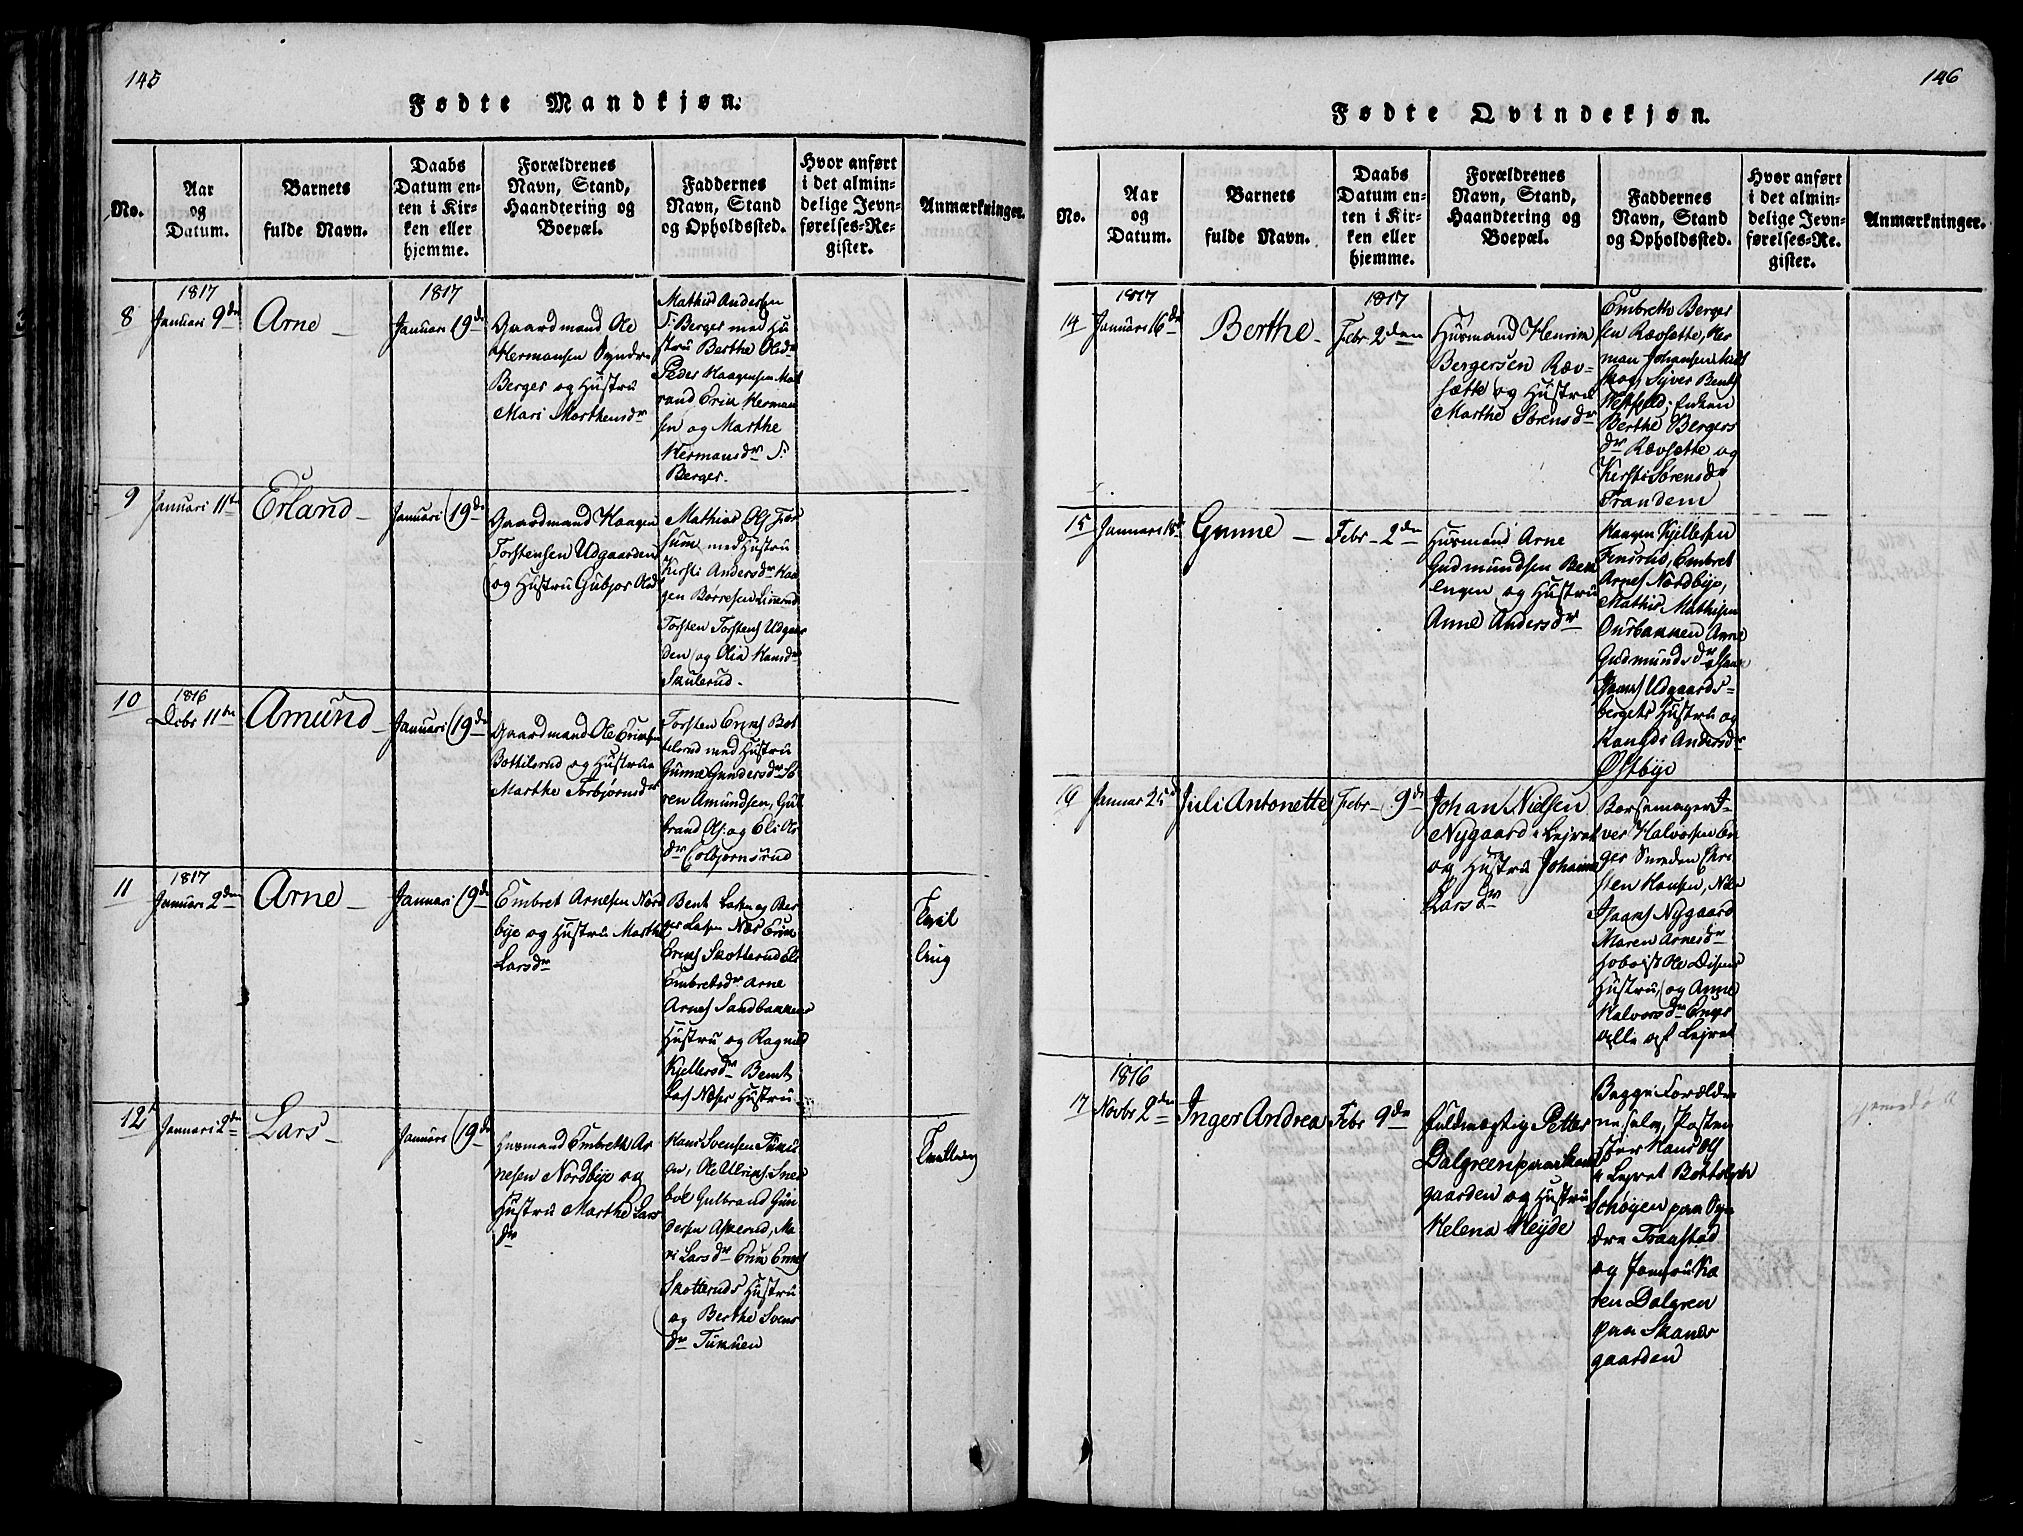 145
Fødte Mandkjøn.
No.
Aar
og
Datum.
Barnets
fulde Navn.
Daabs
Datum en-
ten i Kir-
ken eller
hjemme.
Forældrenes
Navn, Stand,
Haandtering og
Boepæl.
Faddernes
Navn, Stand
og Opholdssted.
Hvor anført
i det almin-
delige Jevn-
førelses-Re-
gister.
Anmærkninger.
8
1817
Januari 9de
Arne
1817
Januari 19de
Gaardmand Ole
Hermansen Syndre
Berger og Hustru
Mari Marthensdr
Mathis Andersen
S. Berger med Hu
stru Berthe Olsdr
Peder Haagensen Mat
rand Erik Herman
sen og Marthe
Hermansdr S.
Berger.
9
Januari 11te
Erland
Januari 19de
Gaardmand Haagen
Torstensen Udgaarden
og Hustru Gubjør Olsdr
Mathias Ols
sum med Hustru
Kirsti Andersdr Haa
gen Borresen Linerud
Torsten Torstens Udgaar
den og Olia Hansdr
Skulerud.
10
1816
Decbr 11te
Amund
Januari 19de
Gaardmand Ole Eriksen
Bottilsrud og Hustrue
Marthe Torbjørnsdr
Torsten Eriks Bot
tilsrud med Hustru
Gunne Gundersdr So
ren Amundsen, Gul
brand Ols. og Eli Ols
dr Colbjørnsrud
11
1817
Januari 2den
Arne
Januari 19de
Embret Arnesen Nord
bye og Hustru Marthe
Larsdr
Bent Larsen og Ber
ger Larsen Næs Erik
Eriks Skotterud Eli
Embretsdr Arne
Arnes Sandbakkens
Hustru og Ragnild
Kjellersdr Bent
Lars Næses Hustru
Tvil
ling
12
Januari 2den
Lars
Januari 19de
Husmand Embreth Ar
nesen Nordbye og
Hustru Marthe Lars
dr
Hans Svensen Tuku
en, Ole Ulriks. Sne
bøl Gulbrand Gun
dersen Askerud, Ma
ri Larsdr Erik Eriks
Skotteruds Hustru
og Berthe Svens
dr Tukuen
Tvilling
146
Fødte Qvindekjøn.
No.
Aar
og
Datum.
Barnets
fulde Navn.
Daabs
Datum en-
ten i Kir-
ken eller
hjemme.
Forældrenes
Navn, Stand,
Haandtering og
Boepæl.
Faddernes
Navn, Stand
og Opholdssted.
Hvor anført
i det almin-
delige Jevn-
førelses-Re-
gister.
Anmærkninger.
14
1817
Januari 16de
Berthe
1817
Febr 2den
Husmand Henrik
Bergersen Ræv-
sætte og Hustru
Marthe Sørensdr
Embreth Berger
sen Rævsette, Her
man Johansen Mid
skog, Syver Bents
Enken
Berthe Bergers
dr Rævsette, og
Kirsti Sørensdr
Trandem
15
Januari 18de
Gunne
Febr 2den
Husmand Arne
Gudmundsen Bek
engen og Hustru
Anne Andersdr
Haagen Kjellesen
Fensrud, Embret
Arnes Nordbye,
Mathis Mathisen
Ousbakken Anne
Gudmundsdr
Udgaards-
bergets Hustru og
Randi Andersdr
Østbye
16
Januar 25de
Juli Antonette
Febr 9de
Johan Nielsen
Nygaard i Lejret
og Hustru Johanne
Larsdr
Børsemager I-
ver Halvorsen En
ger Smeden Chri
sten Hansen, Niels
Isaacs Nygaard
Maren Arnesdr
Hoboist Ole Disens
Hustru, og Anne
Halvorsdr Enger
alle af Lejret
17
1816
Novbr 2den
Inger Andrea
Febr 9de
Fuldmægtig Petter
Dalgreen paa Skans
gaarden og Hustru
Helena Heyde
Begge Foræld
ne selv, Postme
ster Hans Ols
i Lejret
Schøyen paa Syn
dre Traastad
og Jomfru Ka
ren Dalgren
paa Skands
gaarden